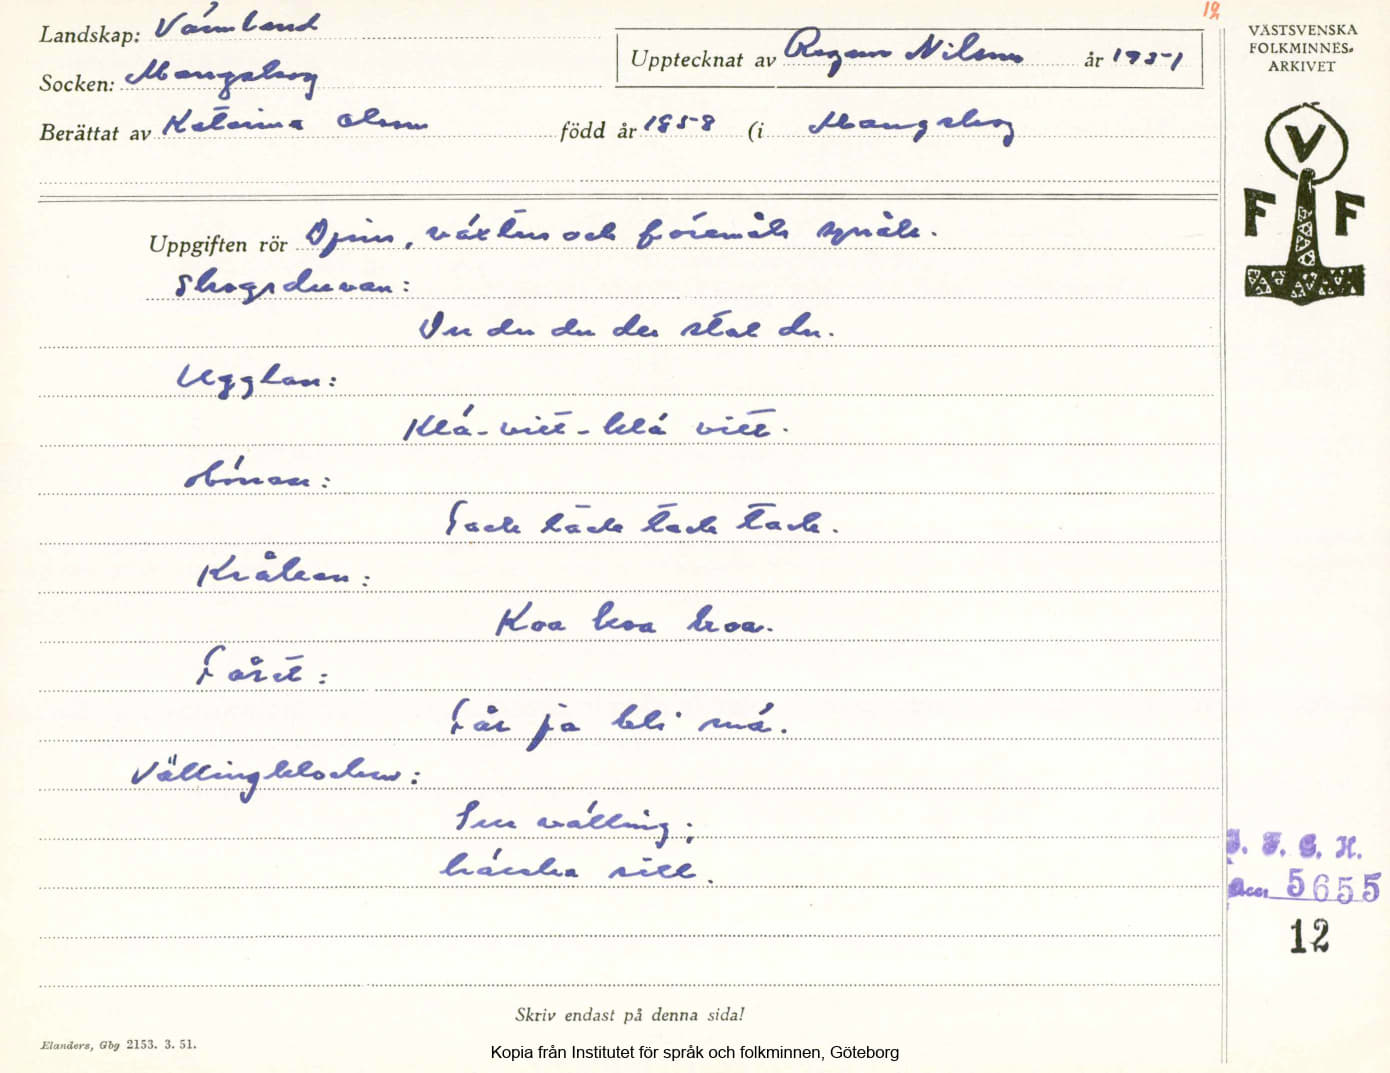 12
Landskap: Värmland
Socken: Mangskog
Upptecknat av Ragnar Nilsson år 1951
Berättat av Katarina Olsson född år 1858 (i Mangskog
VÄSTSVENSKA
FOLKMINNES-
ARKIVET
V
F F
Uppgiften rör Djurs, växters och föremåls språk.
Skogsduvan:
du du du stal du.
Ugglan:
Klä-vitt-klä vitt.
Hönan:
Tack tack tack tack.
Kråkan:
Koa koa koa.
Fåret:
Får ja bli må.
Vällingklockan:
Sur välling;
härska sill.
I. F. G. H.
Acc. 5655
12
Skriv endast på denna sida!
Elanders, Gbg 2153. 3. 51.
Kopia från Institutet för språk och folkminnen, Göteborg